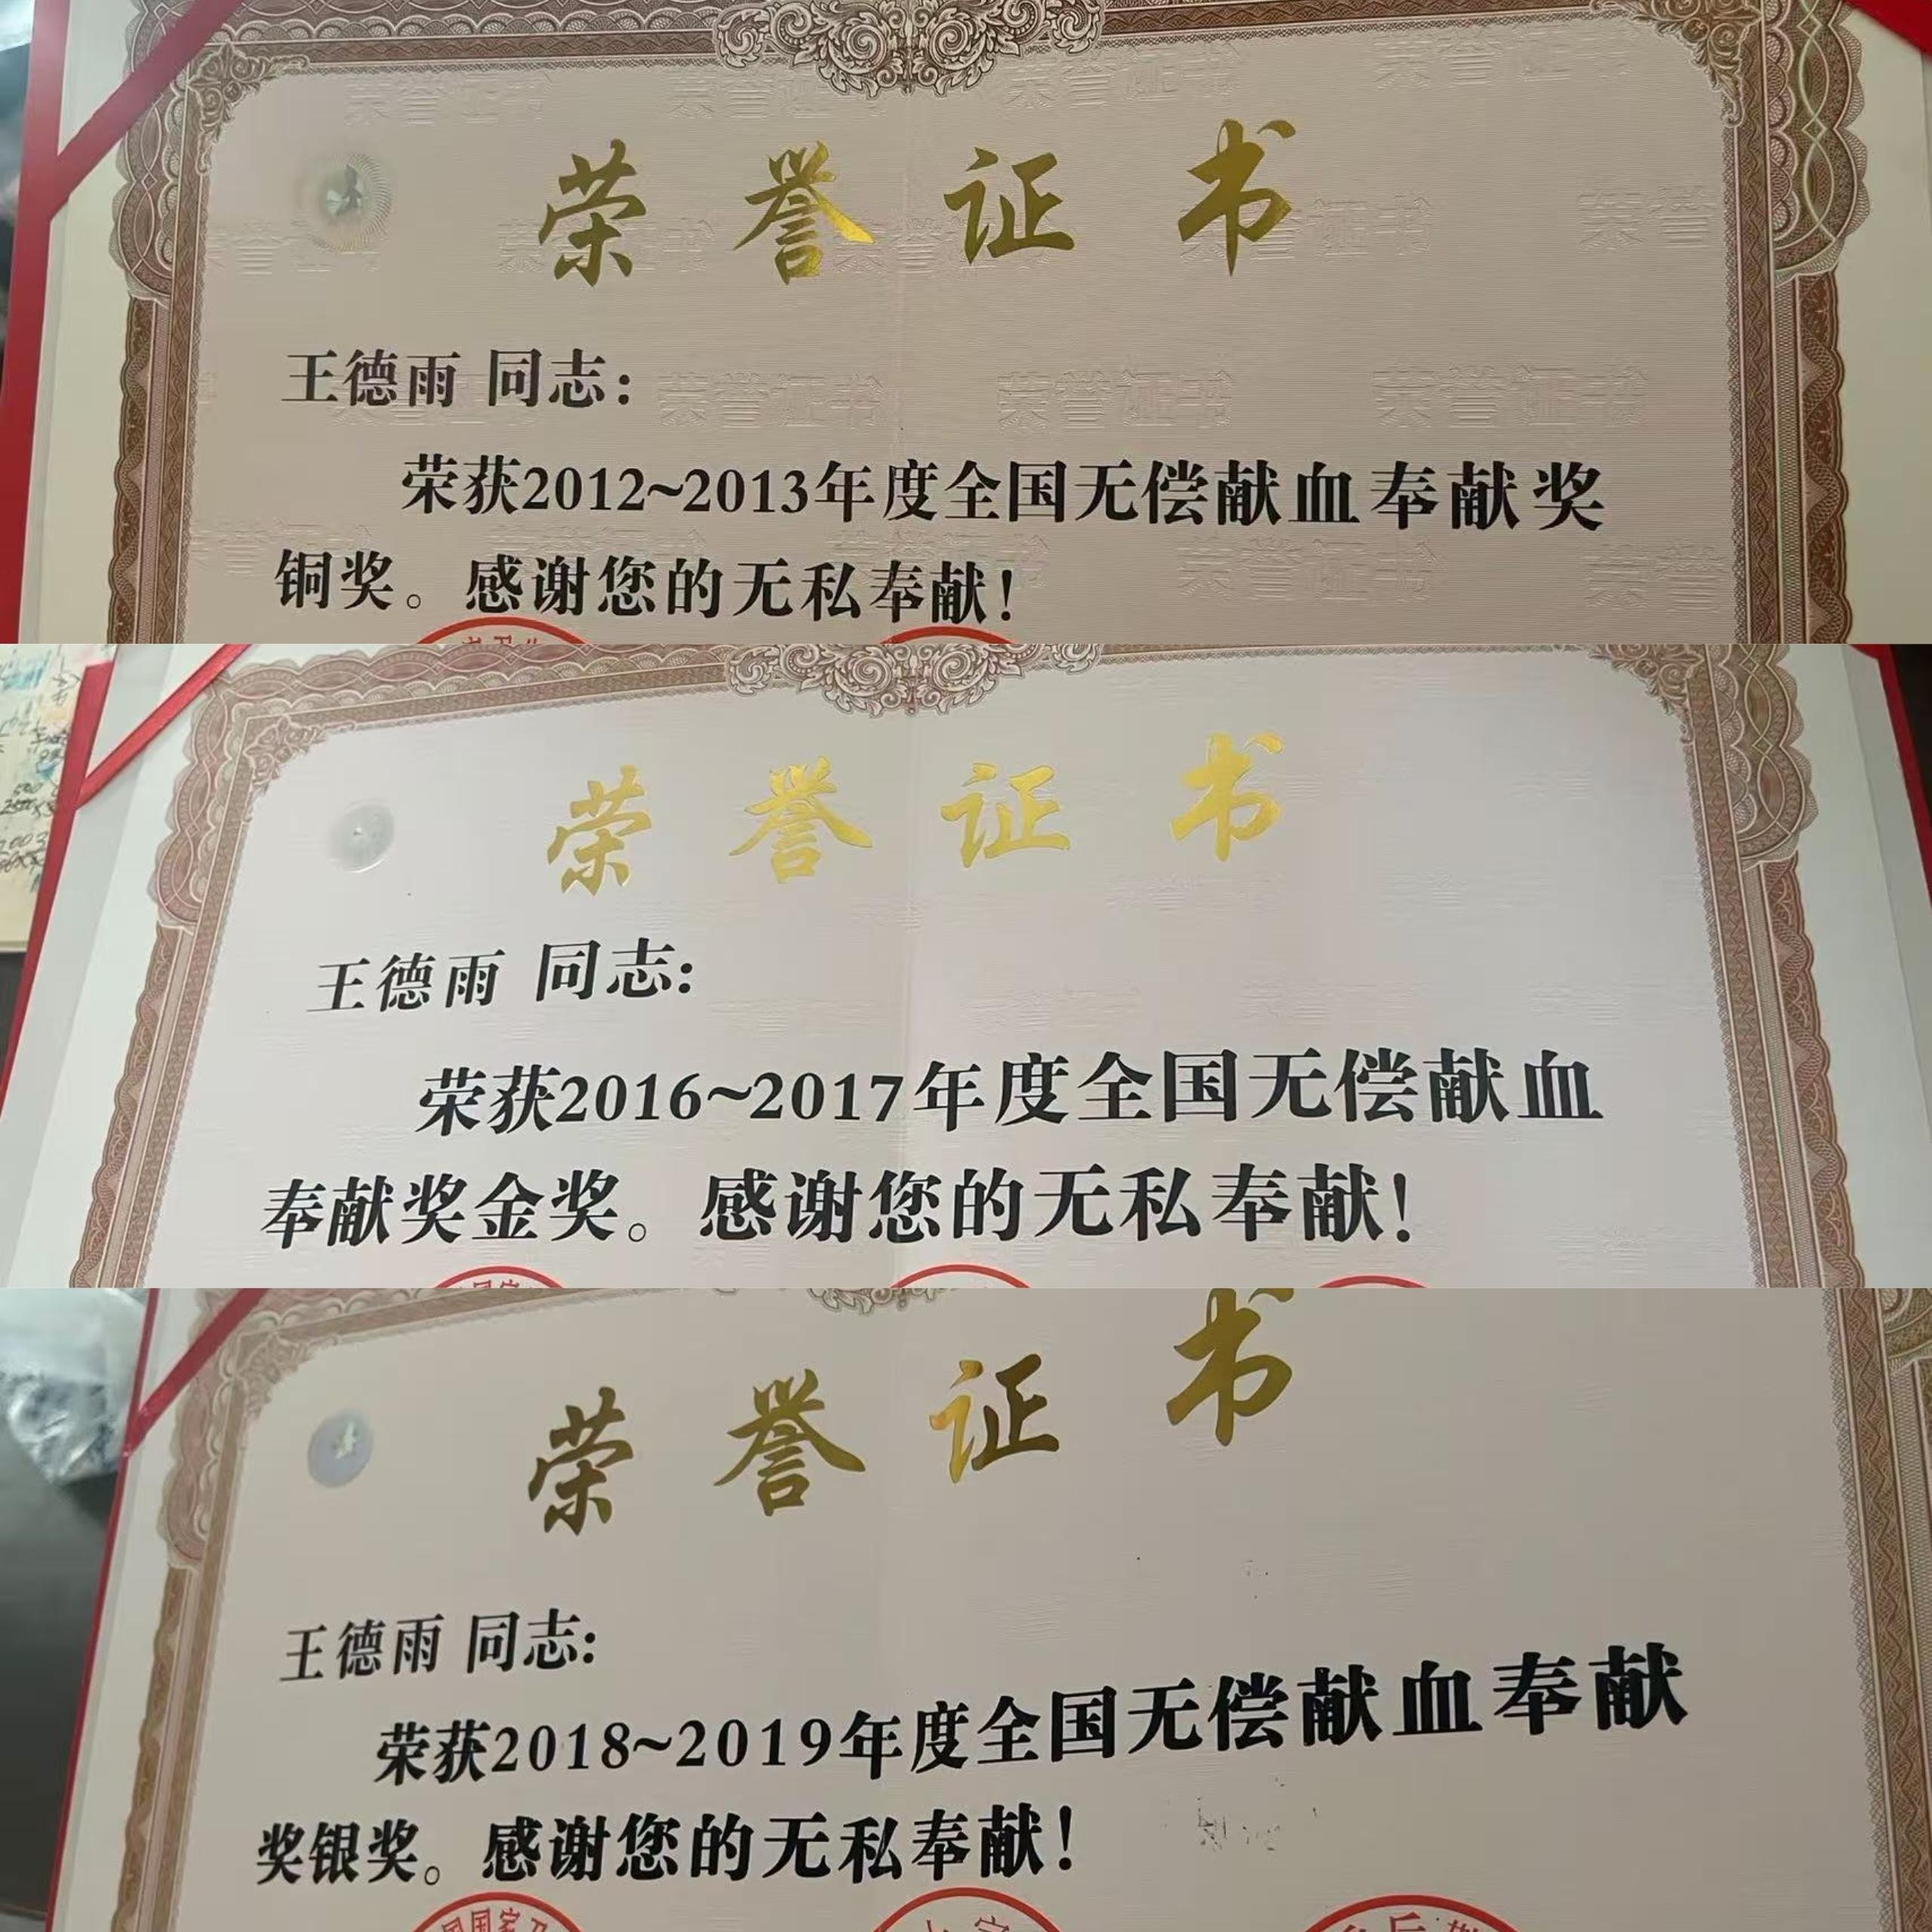 荣誉证书
王德雨 同志：
荣获2012~2013年度全国无偿献血奉献奖
铜奖。感谢您的无私奉献！
荣誉证书
王德雨 同志：
荣获2016~2017年度全国无偿献血
奉献奖金奖。感谢您的无私奉献！
荣誉证书
王德雨 同志：
荣获2018~2019年度全国无偿献血奉献
奖银奖。感谢您的无私奉献！